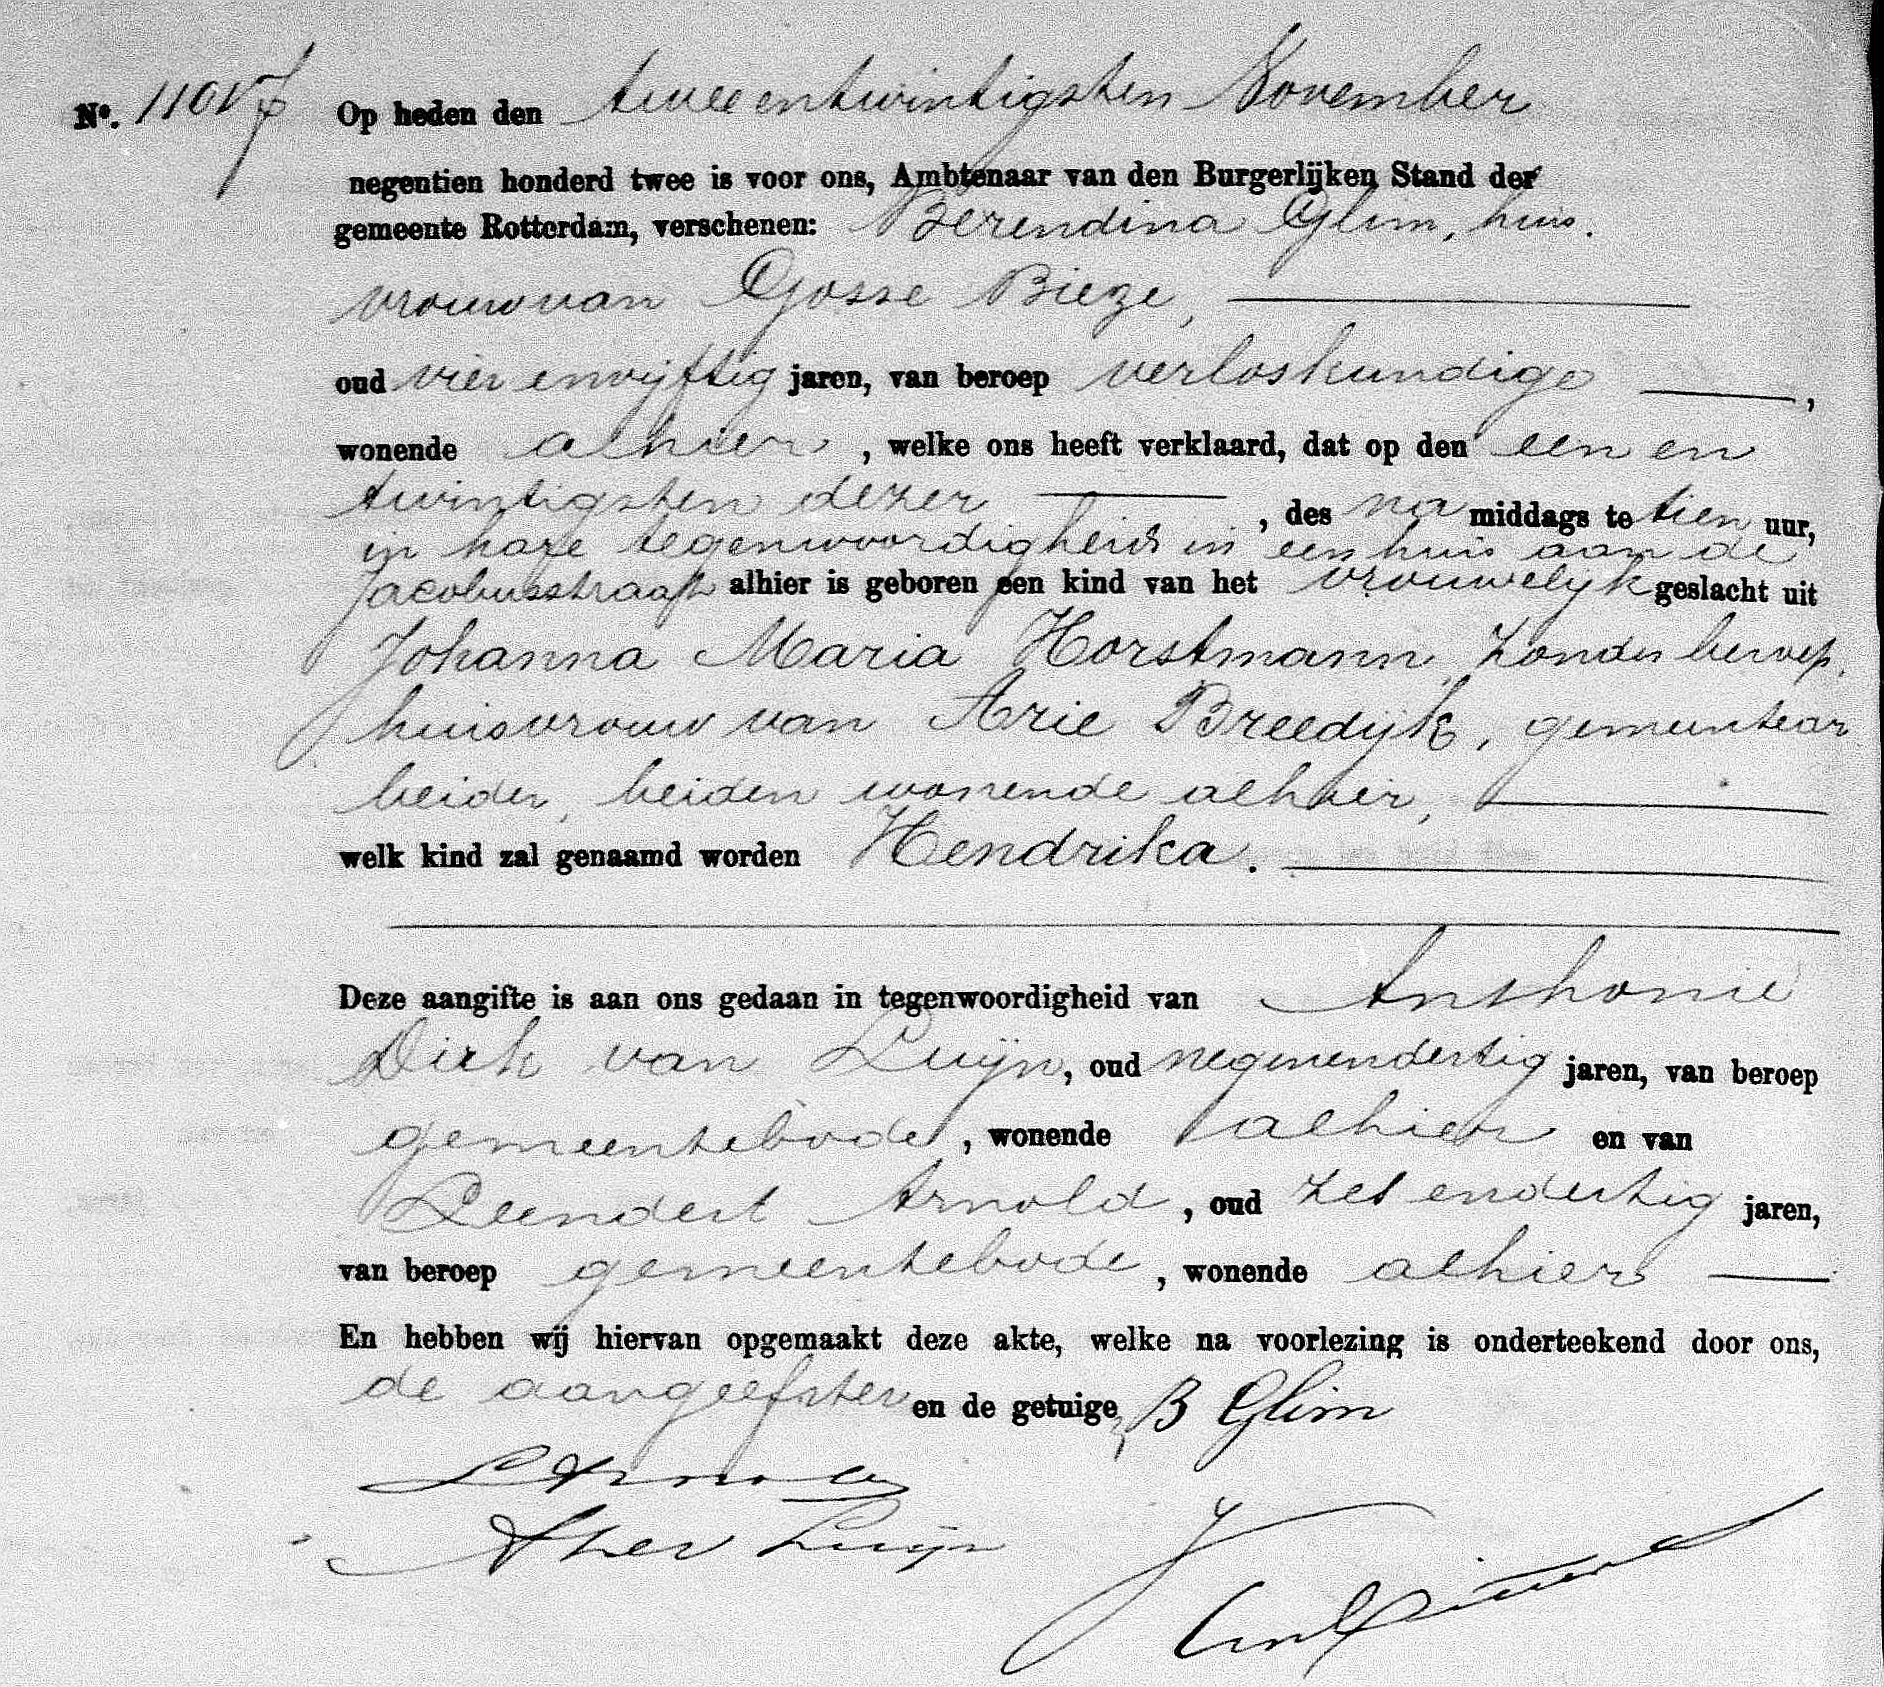 No. 11017 Op heden den tweeentwintigsten November
negentien honderd twee is voor ons, Ambtenaar van den Burgerlijken Stand der
gemeente Rotterdam, verschenen: Berendina Glim, huis.
vrouw van Gosse Bieze,
oud vier envijftig jaren, van beroep verloskundige ,
wonende alhier , welke ons heeft verklaard, dat op den een en
twintigsten dezer , des na middags te tien uur,
in hare tegenwoordigheid in een huis aan de
Jacobusstraat alhier is geboren een kind van het vrouwelijk geslacht uit
Johanna Maria Horstmann, zonder beroep,
huisvrouw van Arie Breedijk, gemeentear
beider, beiden wonende alhier,
welk kind zal genaamd worden Hendrika.
Deze aangifte is aan ons gedaan in tegenwoordigheid van Anthonie
Dirk van Luijn, oud negenendertig jaren, van beroep
gemeentebode, wonende alhier en van
Leendert Arnold, oud zes endertig jaren,
van beroep gemeentebode, wonende alhier
En hebben wij hiervan opgemaakt deze akte, welke na voorlezing is onderteekend door ons,
de aangeefster en de getuigen B Glim
LArnold
Luijn